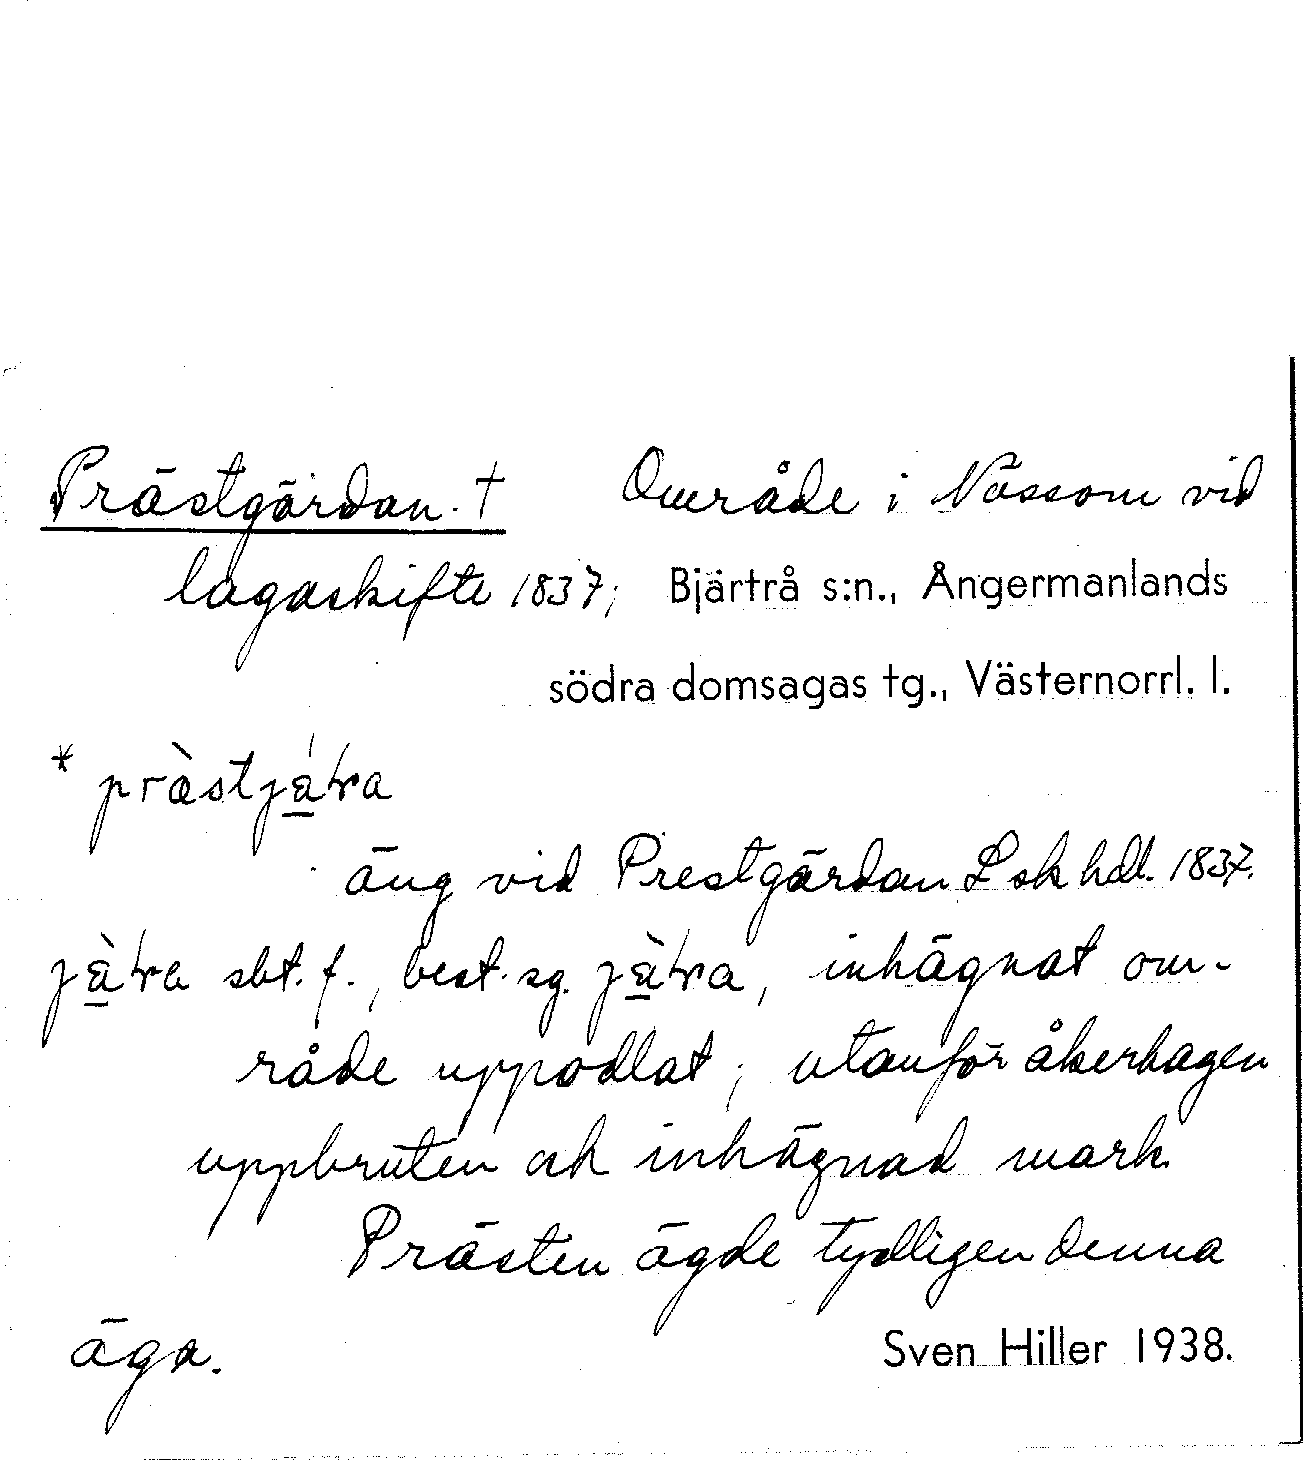 Prästgärdan. † Område i Nässom vid
lagaskifte 1837; Bjärtrå s:n., Ångermanlands
södra domsagas tg., Västernorrl. l.
äng vid Prestgärdan Lsk hdl. 1837.
sbt. f., best. sg. inhägnat om-
råde uppodlat; utanför åkerhagen
uppbruten och inhägnad mark
Prästen ägde tydligen denna
äga. Sven Hiller 1938.